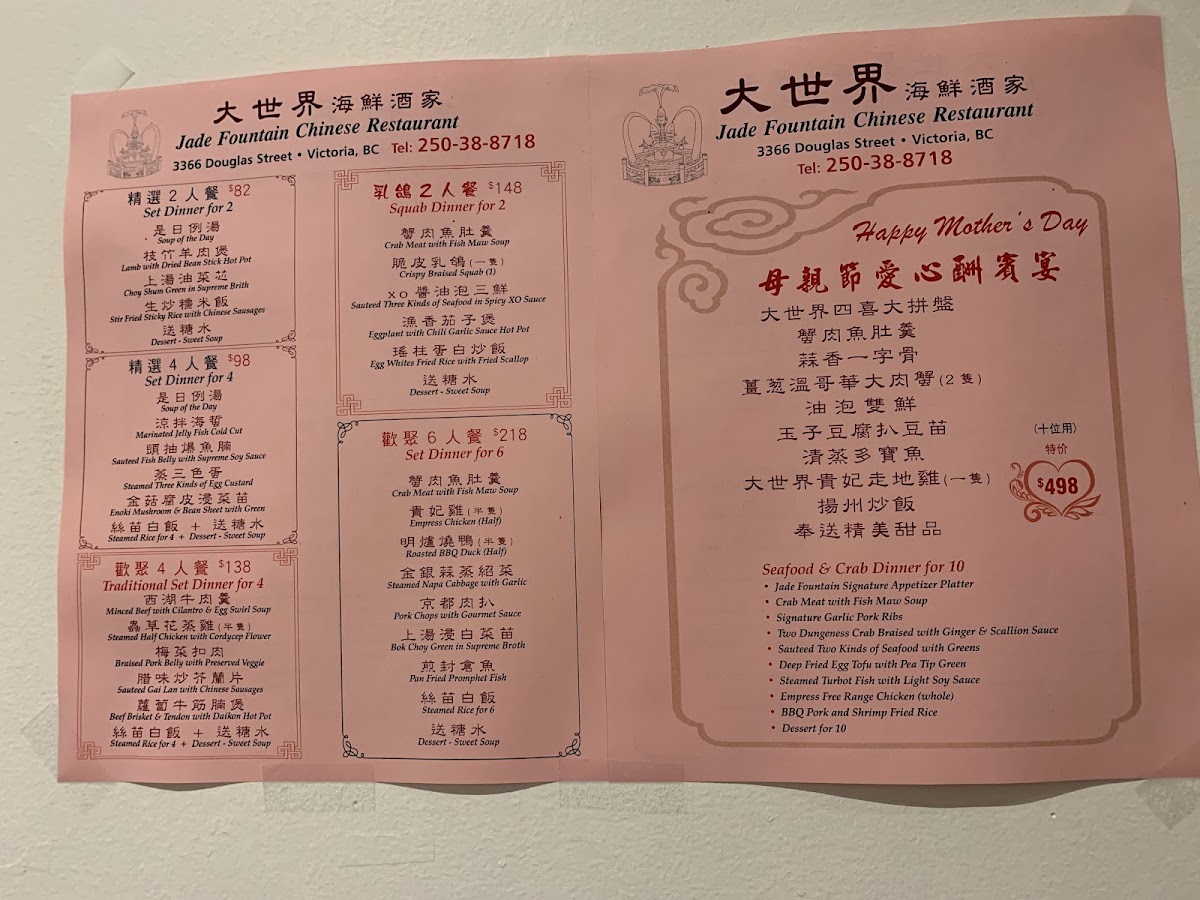 大世界 海鮮酒家
Jade Fountain Chinese Restaurant
3366 Douglas Street • Victoria, BC Tel: 250-38-8718
精選2人餐 $82
Set Dinner for 2
是日例湯
Soup of the Day
枝竹羊肉煲
Lamb with Dried Bean Stick Hot Pot
上湯油菜芯
Choy Shum Green in Supreme Brith
生炒糯米飯
Stir Fried Sticky Rice with Chinese Sausages
送糖水
Dessert - Sweet Soup
精選4人餐 $98
Set Dinner for 4
是日例湯
Soup of the Day
涼拌海蜇
Marinated Jelly Fish Cold Cut
頭抽爆魚腩
Sauteed Fish Belly with Supreme Soy Sauce
蒸三色蛋
Steamed Three Kinds of Egg Custard
金菇腐皮浸菜苗
Enoki Mushroom & Bean Sheet with Green
絲苗白飯 + 送糖水
Steamed Rice for 4 + Dessert - Sweet Soup
歡聚4人餐 $138
Traditional Set Dinner for 4
西湖牛肉羹
Minced Beef with Cilantro & Egg Swirl Soup
蟲草花蒸雞(半隻)
Steamed Half Chicken with Cordycep Flower
梅菜扣肉
Braised Pork Belly with Preserved Veggie
腊味炒芥蘭片
Sauteed Gai Lan with Chinese Sausages
蘿蔔牛筋腩煲
Beef Brisket & Tendon with Daikon Hot Pot
絲苗白飯 + 送糖水
Steamed Rice for 4 + Dessert - Sweet Soup
乳鴿2人餐 $148
Squab Dinner for 2
蟹肉魚肚羹
Crab Meat with Fish Maw Soup
脆皮乳鴿(一隻)
Crispy Braised Squab (1)
XO醬油泡三鮮
Sauteed Three Kinds of Seafood in Spicy XO Sauce
漁香茄子煲
Eggplant with Chili Garlic Sauce Hot Pot
瑤柱蛋白炒飯
Egg Whites Fried Rice with Fried Scallop
送糖水
Dessert - Sweet Soup
歡聚6人餐 $218
Set Dinner for 6
蟹肉魚肚羹
Crab Meat with Fish Maw Soup
貴妃雞(半隻)
Empress Chicken (Half)
明爐燒鴨(半隻)
Roasted BBQ Duck (Half)
金銀蒜蒸紹菜
Steamed Napa Cabbage with Garlic
京都肉扒
Pork Chops with Gourmet Sauce
上湯浸白菜苗
Bok Choy Green in Supreme Broth
煎封倉魚
Pan Fried Promphet Fish
絲苗白飯
Steamed Rice for 6
送糖水
Dessert - Sweet Soup
大世界 海鮮酒家
Jade Fountain Chinese Restaurant
3366 Douglas Street • Victoria, BC
Tel: 250-38-8718
Happy Mother's Day
母親節愛心酬賓宴
大世界四喜大拼盤
蟹肉魚肚羹
蒜香一字骨
薑蔥溫哥華大肉蟹(2隻)
油泡雙鮮
玉子豆腐扒豆苗
清蒸多寶魚
大世界貴妃走地雞(一隻)
揚州炒飯
奉送精美甜品
(十位用)
特价
$498
Seafood & Crab Dinner for 10
• Jade Fountain Signature Appetizer Platter
• Crab Meat with Fish Maw Soup
• Signature Garlic Pork Ribs
• Two Dungeness Crab Braised with Ginger & Scallion Sauce
• Sauteed Two Kinds of Seafood with Greens
• Deep Fried Egg Tofu with Pea Tip Green
• Steamed Turbot Fish with Light Soy Sauce
• Empress Free Range Chicken (whole)
• BBQ Pork and Shrimp Fried Rice
• Dessert for 10